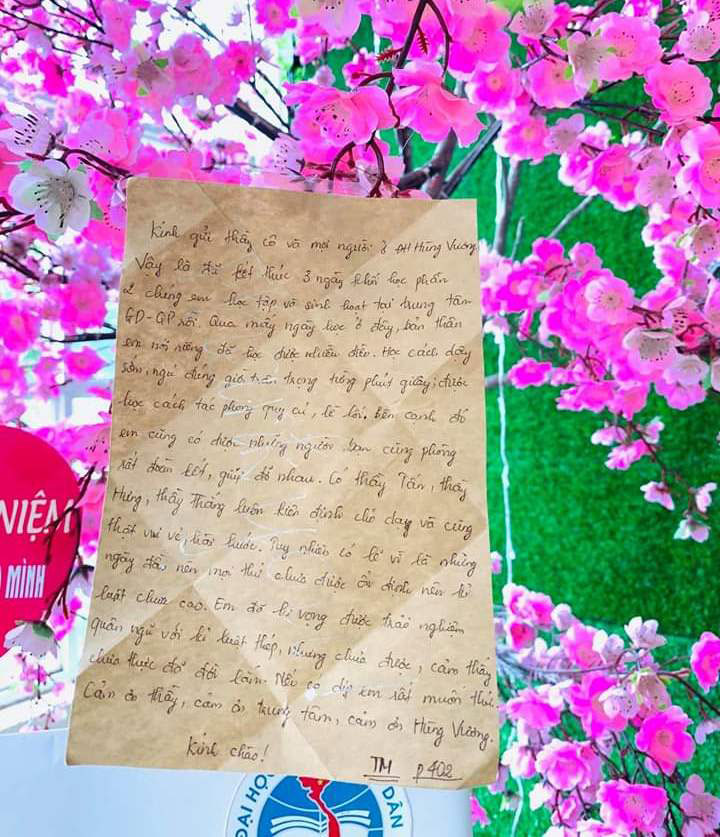 Kính gửi thầy cô và mọi người ở ĐH Hùng Vương
Vậy là đã kết thúc 3 ngày khối học phần
2 chúng em học tập và sinh hoạt tại trung tâm
GD-QP rồi. Qua mấy ngày học ở đây, bản thân
em nói riêng đã học được nhiều điều. Học cách dậy
sớm, ngủ đúng giờ, trân trọng từng phút giây; được
học cách tác phong quy củ, lề lối, bên cạnh đó
em cũng có được những người bạn cùng phòng
rất đoàn kết, giúp đỡ nhau. Có thầy Tấn, thầy
Hưng, thầy Thắng luôn kiên định chỉ dạy và cũng
thật vui vẻ, hài hước. Tuy nhiên có lẽ vì là những
ngày đầu nên mọi thứ chưa được ổn định nên kỉ
luật chưa cao. Em đã kì vọng được trải nghiệm
quân ngũ với kỉ luật thép, nhưng chưa được, cảm thấy
chưa thực đã đời lắm. Nếu có dịp em rất muốn thử.
Cảm ơn thầy, cảm ơn trung tâm, cảm ơn Hùng Vương.
Kính chào!
TM P402
NIỆM
MÌNH
ĐẠI HỌC DÂN